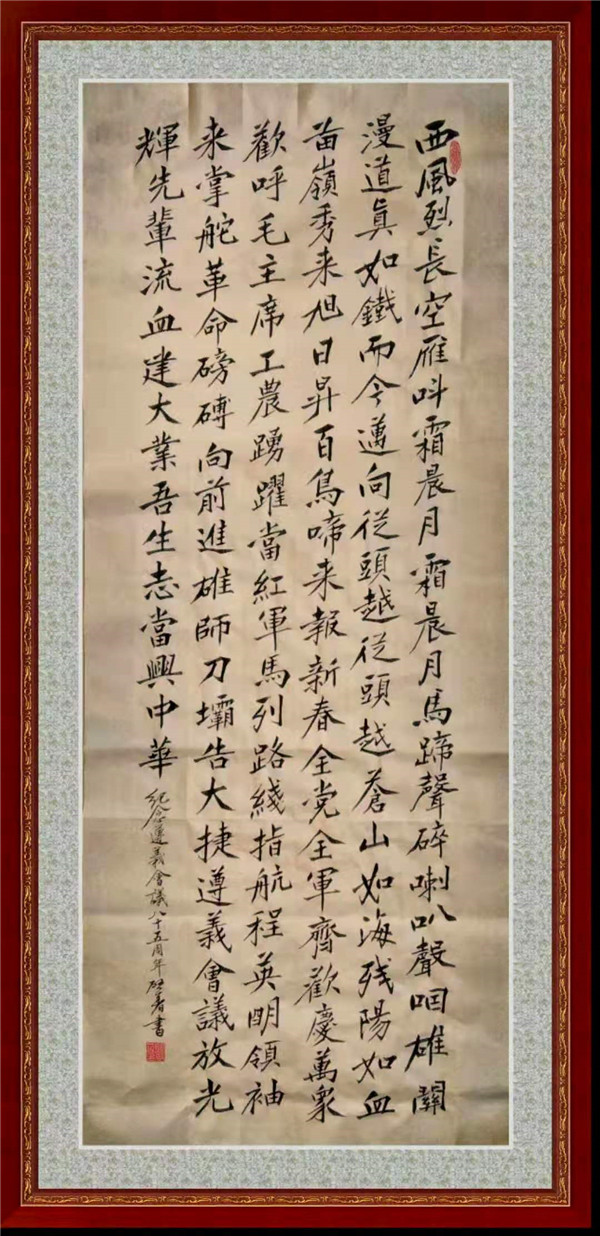 西風烈長空雁呌霜晨月霜晨月馬蹄聲碎喇叭聲咽雄關
漫道眞如鐵而今邁向從頭越從頭越蒼山如海残陽如血
苗嶺秀来旭日昇百鳥啼来報新春全党全軍齊歡慶萬衆
歡呼毛主席工農踴躍當紅軍馬列路綫指航程英明領袖
来掌舵革命磅礡向前進雄師刀壩告大捷遵義會議放光
輝先輩流血建大業吾生志當興中華
紀念遵義會議八十五周年 書